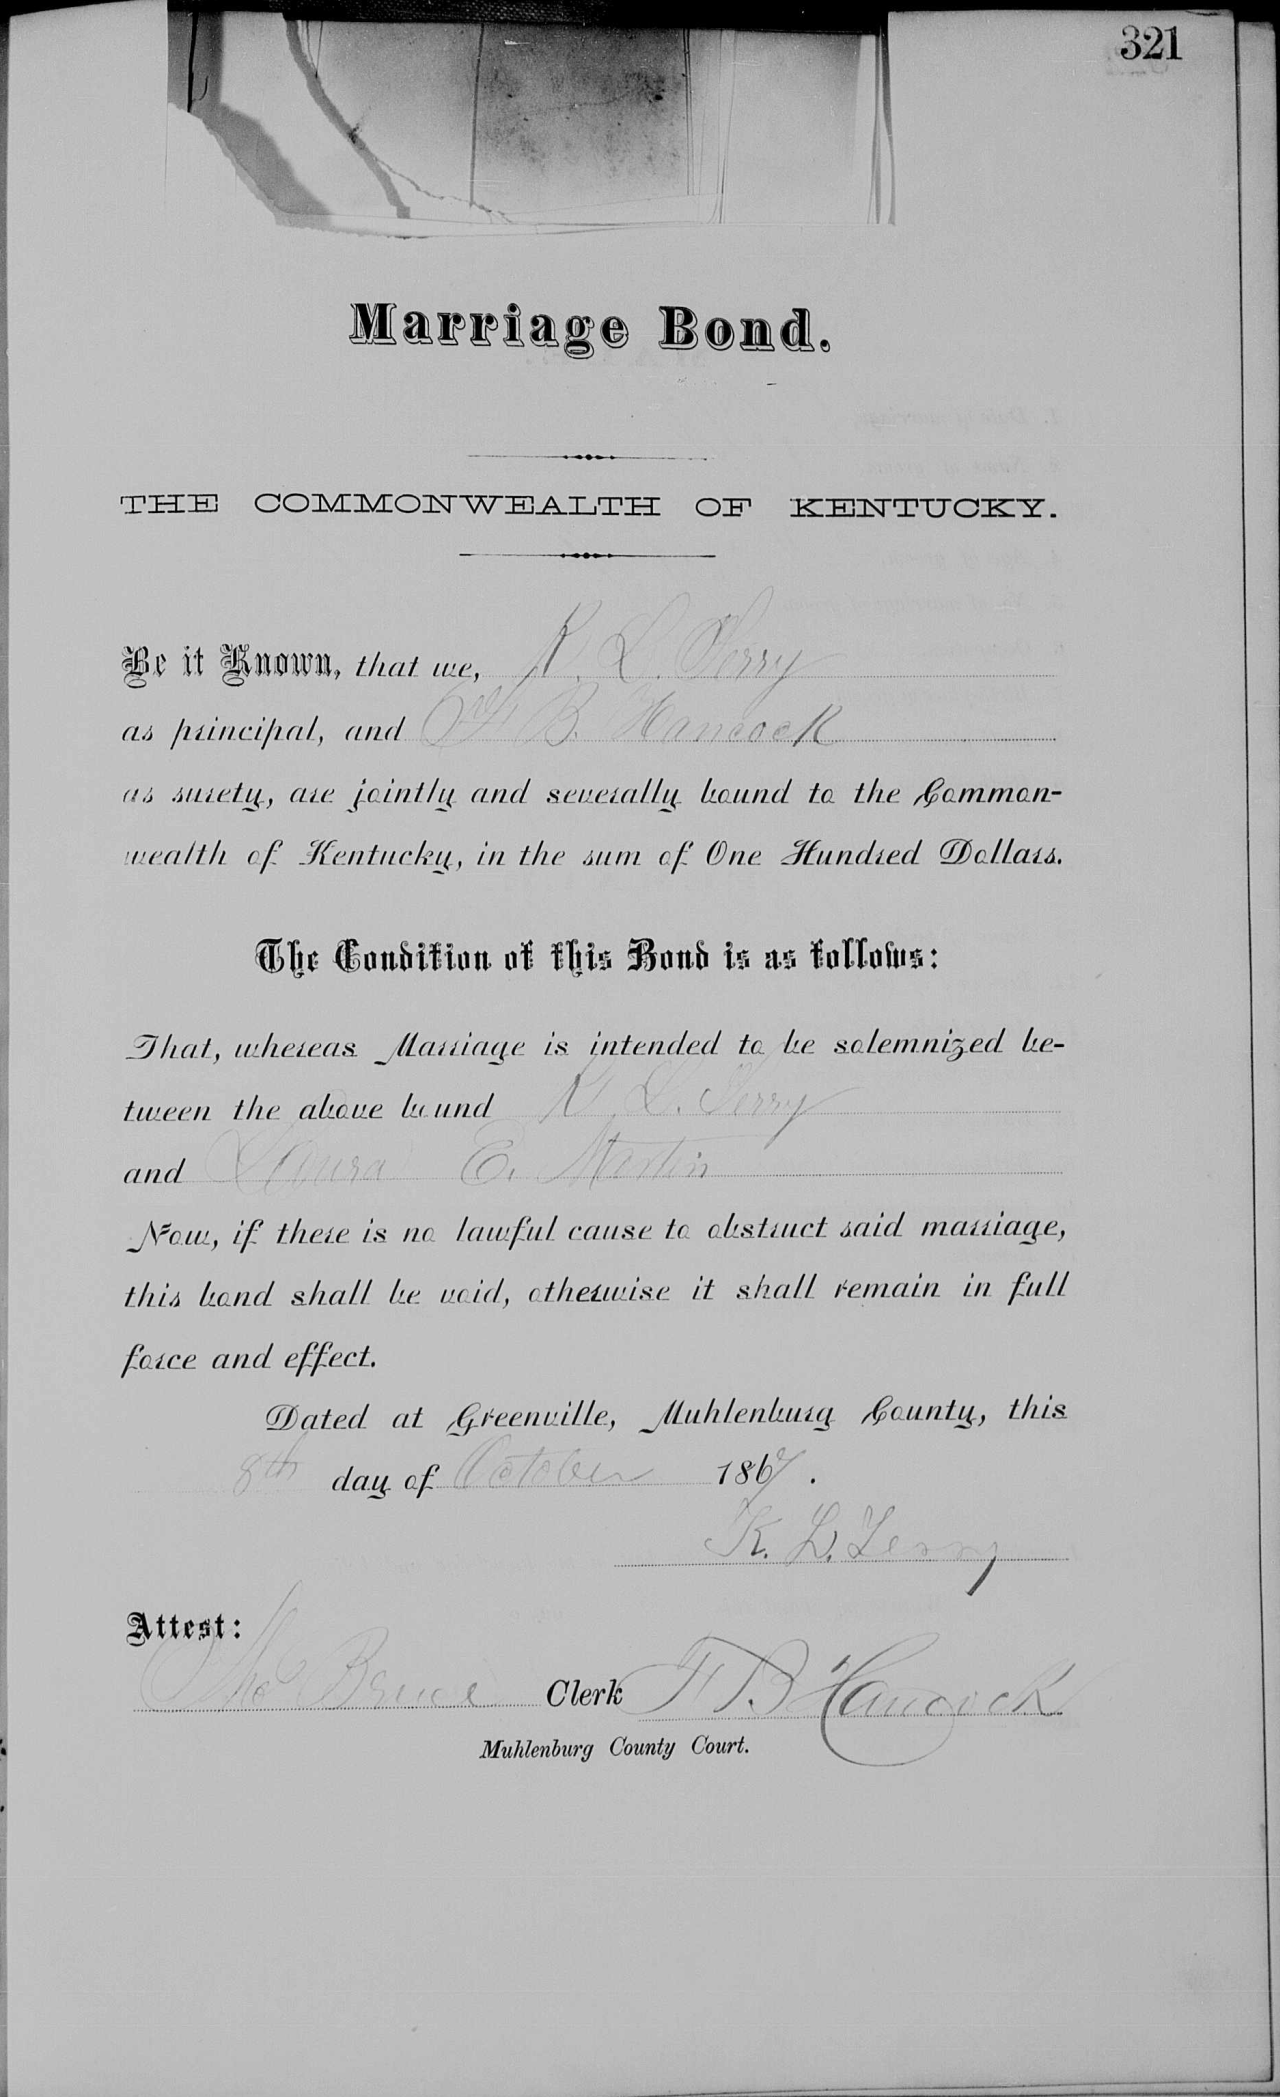 321
Marriage Bond.
THE COMMONWEALTH OF KENTUCKY.
Be it Known, that we, K. L. Terry
as principal, and F B. Hancock
as surety, are jointly and severally bound to the Common-
wealth of Kentucky, in the sum of One Hundred Dollars.
The Condition of this Bond is as follows:
That, whereas Marriage is intended to be solemnized be-
tween the above bound K. L. Terry
and Laura E. Martin
Now, if there is no lawful cause to obstruct said marriage,
this bond shall be void, otherwise it shall remain in full
force and effect.
Dated at Greenville, Muhlenburg County, this
8th day of October 1867.
K. L. Terry
Attest:
Bruce Clerk F B Hancock
Muhlenburg County Court.